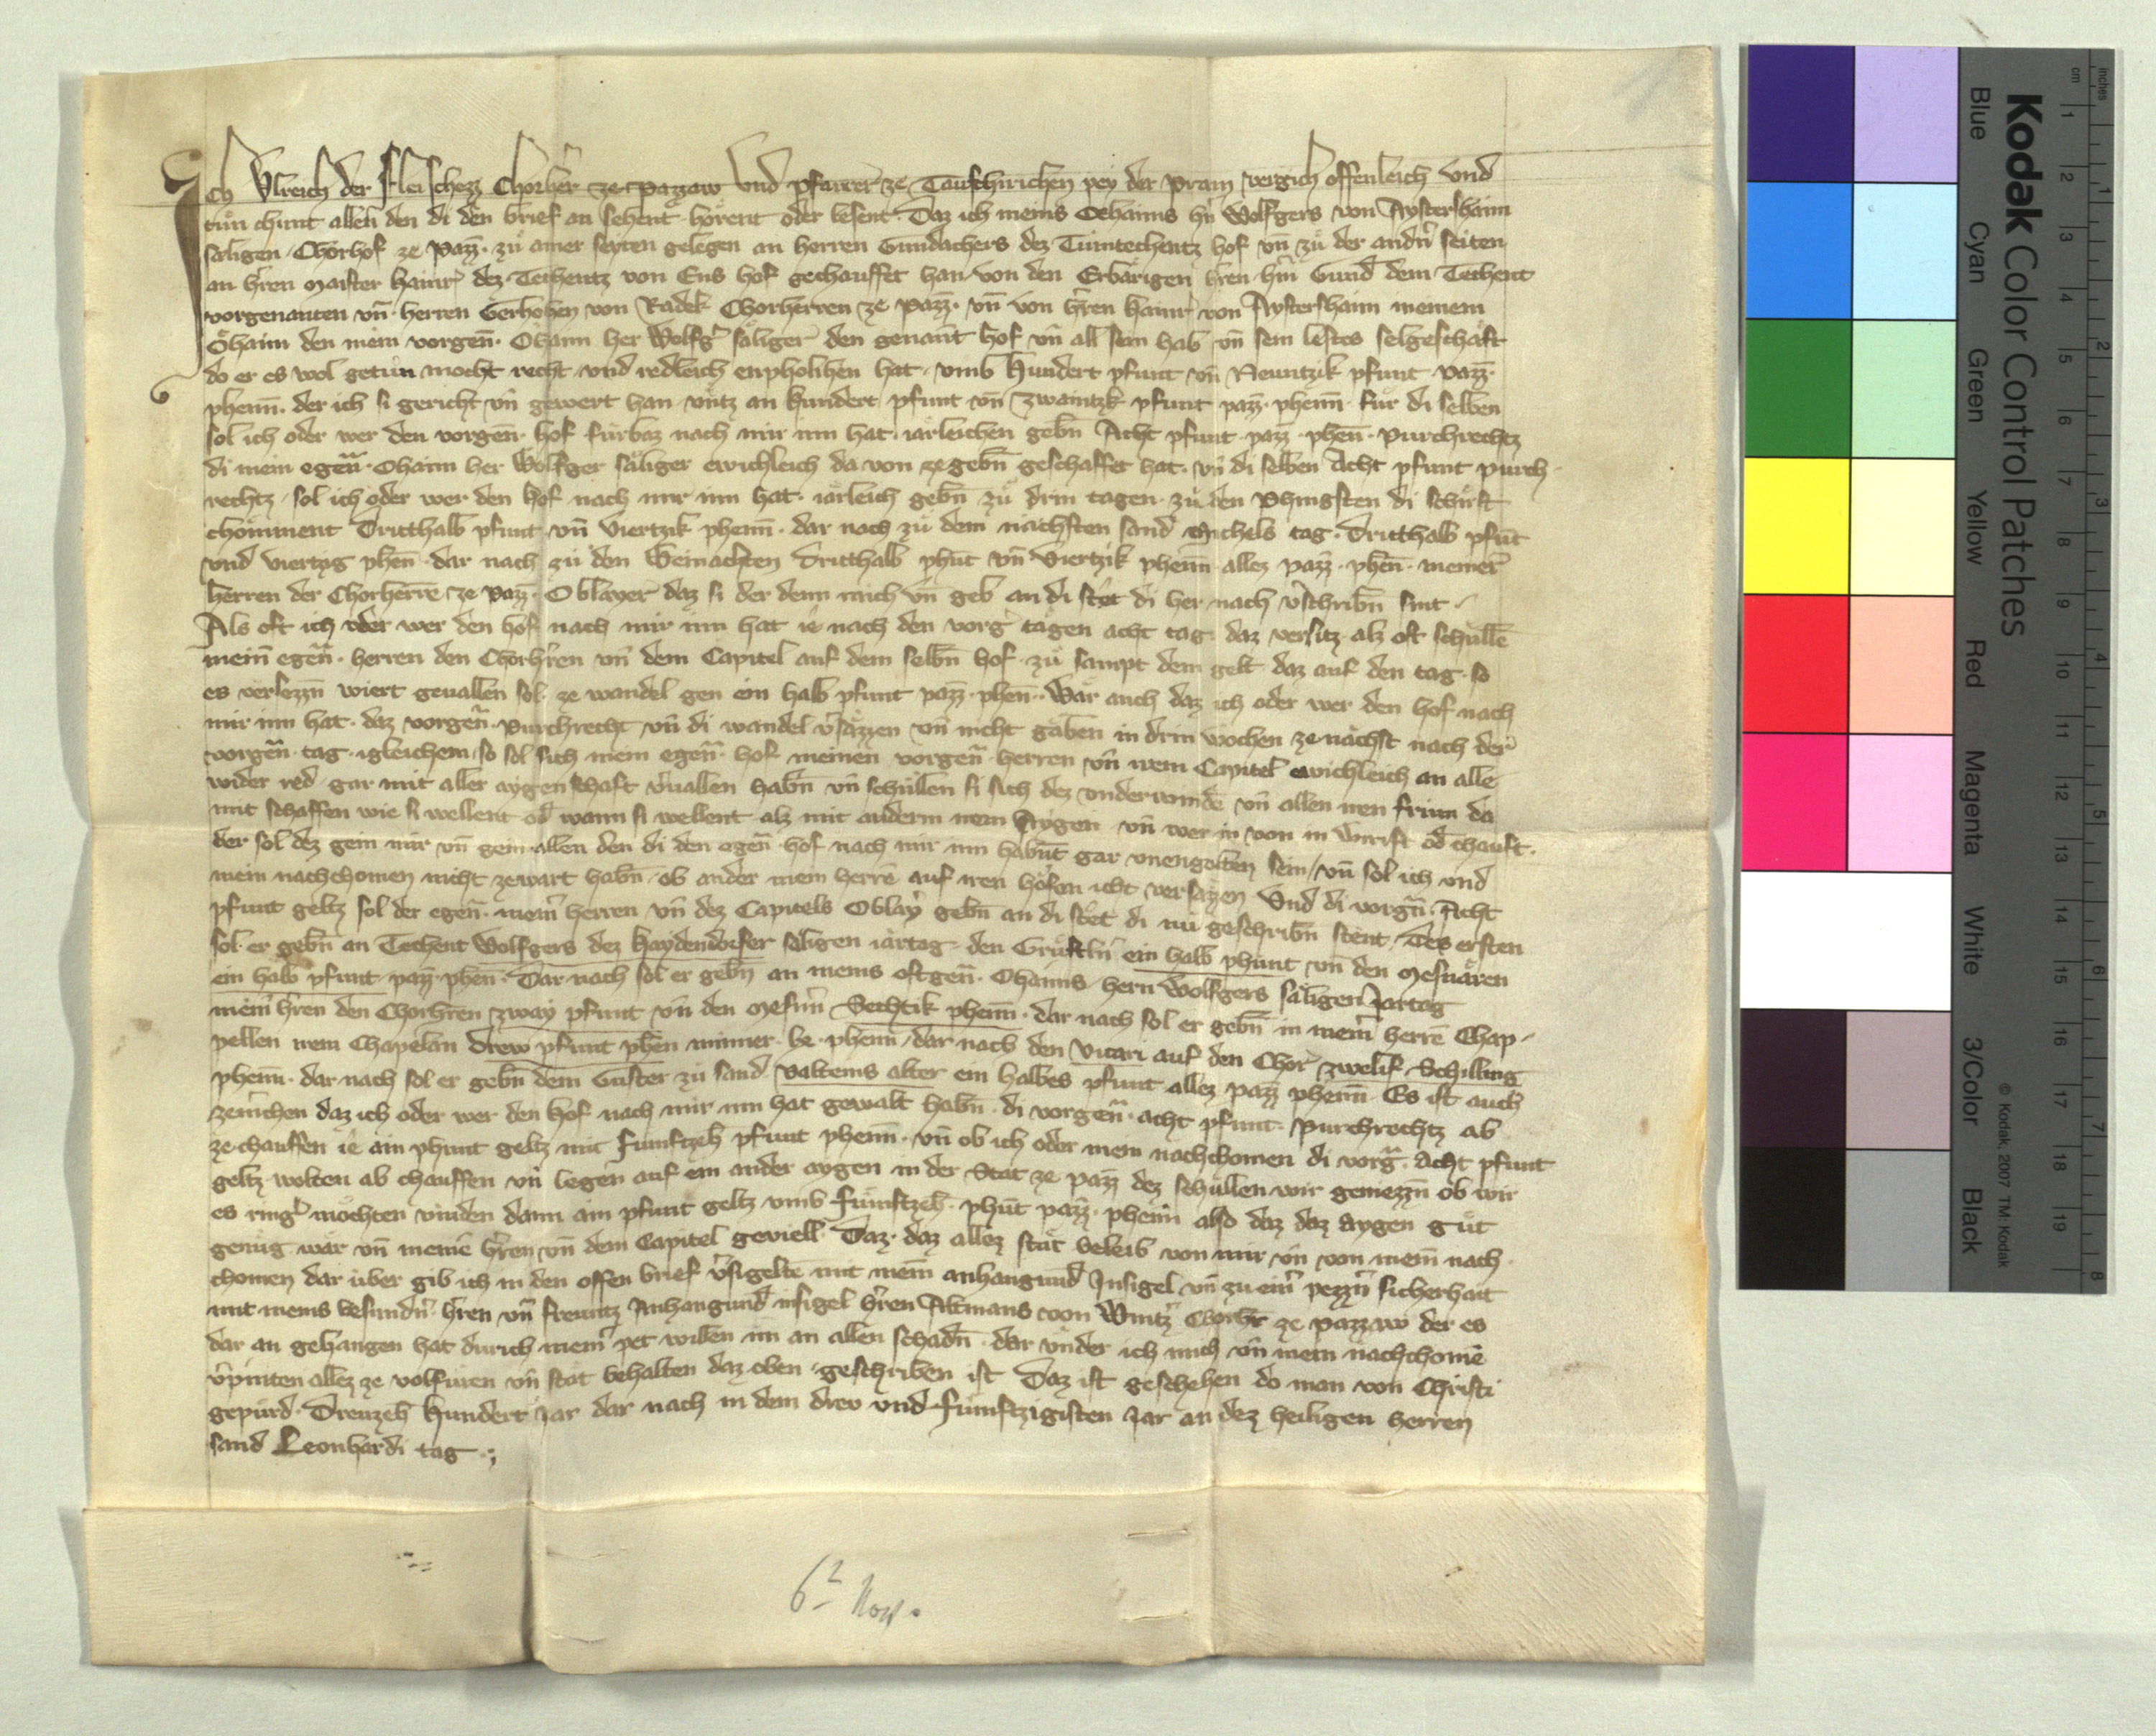 Ich Ulreich der Fleischezz Chorher ze Pazzaw Und pfarrer ze Taufchirichen pey der Pram vergich offenleich Und
tuͤn chunt allen den di den brief an sehent hoͤrent oder lesent. Daz ich meins Oͤhaims hn̄ Wolfgers von Aystershaim
saͤligen Chorhof ze Pazz. zuͦ ainer seyten gelegen an herren Gundachers dez Tuͤmtechentz hof vn̄ zuͦ der andn̄ seiten
an hren maister hainr dez Techentz von Ens hof gechauffet han von den Erbaͤrigen hren hrn Gund dem Techent
vorgenanten vn̄ herren Gerhohen von Radek Chorherren ze Pazz. vn̄ von hren hainr von Aystershaim meinem
Oͤhaim den mein vorgen̄. Oͤhaim her Wolfgr saͤliger den genant hof vn̄ all sein hab vn̄ sein lestes selgeschaͤft
do er es wol getuͤn mocht recht vnd redleich enpholihen hat vmb Hundert pfunt vn̄ Neuntzik pfunt pazz.
phenn̄. der ich si gericht vn̄ gewert han vntz an hundert pfunt vn̄ Zwaintzk pfunt pazz. phenn̄ fuͤr di selben
sol ich oder wer den vorgen̄. hof fuͤrbaz nach mir inn hat iaͤrleichen gebn̄ Acht pfunt pazz. phen̄. Purchrechtz
di mein egen̄. Ohaim her Wolfger saͤliger ewichleich da von ze gebn̄ geschaffet hat. vn̄ di selben Acht pfunt purch
rechtz sol ich oder wer den hof nach mir inn hat. iaͤrleich gebn̄ zuͦ drin tagen. zuͦ den Phingsten di schirst
choͤmment Dritthalb pfunt vn̄ Viertzik phenn̄. dar nach zuͦ dem naͤchsten sand Michels tag. Dritthalb pfunt
vnd viertzig phen̄ dar nach zu den Weinachten dritthalb phunt vn̄ Viertzik phenn̄ allez pazz. phen̄. meiner
herren der Chorherre ze Pazz. Oblayer daz si der denn nich vn̄ geb an di stet di her nach vschribn̄ sint
Als oft ich oder wer den hof nach mir inn hat ie nach den vorg tagen acht tag daz versitz alz oft schulle
mein egen̄. herren den Chorhren vn̄ dem Capitel auf dem selbn̄ hof zuͦ sampt dem gelt daz auf den tag so
es verlezzn̄ wiert geuallen sol. ze wandel gen ein halb pfunt pazz. phen̄. Waͤr auch daz ich oder wer den hof nach
mir inn hat. daz vorgen̄. Purchrecht vn̄ di wandel vsaͤzzen vn̄ nicht gaͤben in drin wochen ze naͤchst nach der
vorgen̄. tag igleichem so sol sich mein egen̄. hof meinen vorgen̄ herren vn̄ irem Capitel ewichleich an alle
wider red gar mit aller aygenschaft vuallen habn̄ vn̄ schullen si sich dez vnderwinde vn̄ allen iren frum da
mit schaffen wie si wellent od wann si wellent alz mit anderm irem Aygen vn̄ wer in von in stift od chauft.
der sol dez gein mir vn̄ gein allen den di den egen̄ hof nach mir inn habnt gar vnengolten sein vn̄ sol ich vnd
mein nachchomen nicht zewart habn̄ ob ander mein herre auf iren hoͤfen icht versazzen Vnd di vorgn̄. Acht
pfunt geltz sol der egen̄. mein herren vn̄ dez Capitels Oblayr gebn̄ an di stet di nu geschribn̄ stent. Des ersten
sol er gebn̄ an Techent Wolfgers dez haydendorfer saͤligen iartag den Gruͤftlrn ein halb phunt vn̄ den Mesnaͤren
ein halb pfunt pazz phen̄. Dar nach sol er gebn̄ an meins oftgen̄. Ohaims hern Wolfgers saͤligen Jartag
mein hren den Chorhren zway pfunt vn̄ den Mesnn̄ Sechtzik phenn̄. dar nach sol er gebn̄ in meinr herre Chap
pellen irem Chapelan drew pfunt phen̄ minner lx phenn̄ dar nach den vicari auf den Chor zwelif Schilling
phenn̄. dar nach sol er gebn̄ dem Guster zu sand Valteins alter ein halbes pfunt allez pazz phenn̄ Es ist auch
ze wizzen daz ich oder wer den hof nach mir inn hat gewalt habn̄. di vorgen̄. acht pfunt. Purchrechtz ab
ze chauffen ie ain phunt geltz mit fuͤmftzeh pfunt phenn̄. vn̄ ob ich oder mein nachchomen di vorḡ. Acht pfunt
geltz wolten ab chauffen vn̄ legen auf ein ander aygen in der Stat ze Pazz dez schuͤllen wir geniezzn̄ ob wir
es ringr moͤchten vinden dann ain pfunt geltz vmb fuͤmftzeh. phunt pazz. phenn̄ also daz daz aygen guͦt
genuͦg waͤr vn̄ meine hren vn̄ dem Capitel geviell. Daz. daz allez staͤt beleib von mir vn̄ von mein nach
chomen dar uͤber gib ich in den offen brief vsigelte mit meim anhangund Insigel vn̄ zu einr pezzrn sicherhait
mit meins besundrn hren vn̄ freuntz Anhangund insigel hren Altmans von Wintzr Chorhr ze Pazzaw der es
dar an gehangen hat durich meinr pet willen im an allen schadn̄. dar vnder ich mich vn̄ mein nachchome
vpinten allez ze volfuͤren vn̄ staͤt behalten daz oben geschriben ist Daz ist geschehen do man von Christi
gepuͤrd. Dreuzeh hundert Jar dar nach in dem drev vnd fuͤmftzigisten Jar an dez heiligen herren
sand Leonhardi tag.
6t Nov.
Kodak Color Control Patches
Blue Cyan Green Yellow Red Magenta White 3/Color Black
© Kodak, 2007 TM: Kodak
inches 1 2 3 4 5 6 7 8
cm 1 2 3 4 5 6 7 8 9 10 11 12 13 14 15 16 17 18 19